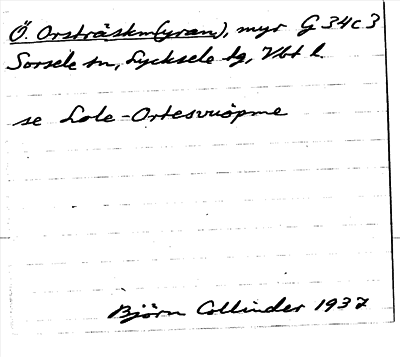 Ö. Orsträskm(yran), myr G 34c3
Sorsele sn, Lycksele lg, Vbt l.
se Lole-Ortesvuöpme
Björn Collinder 1937